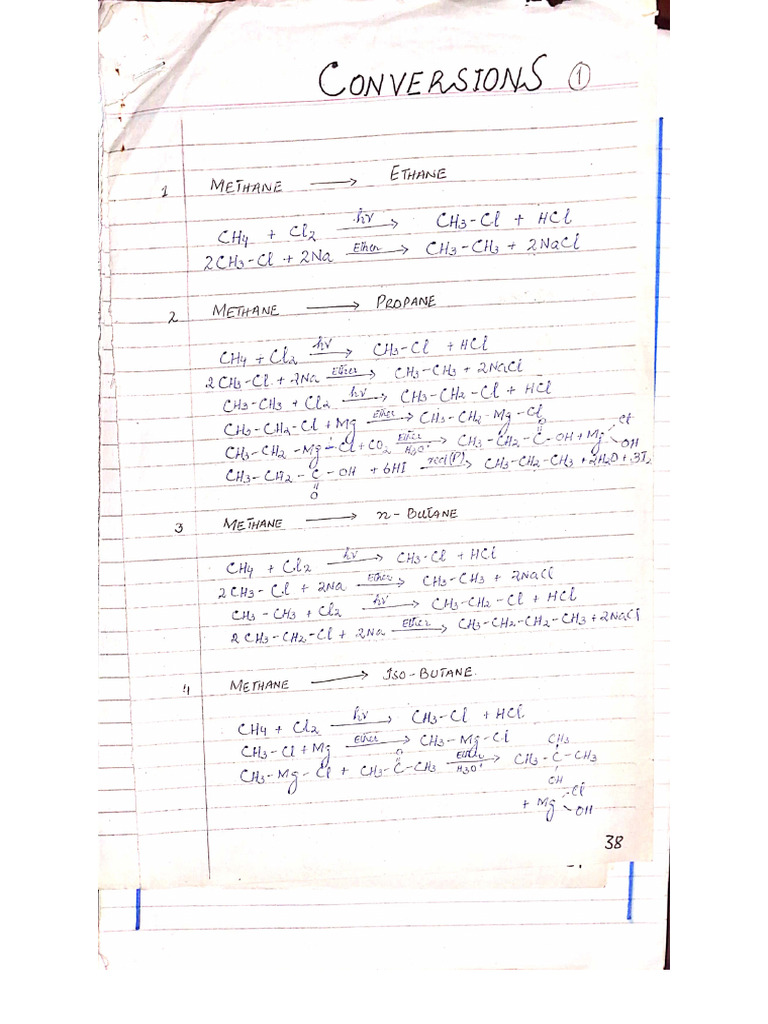 CONVERSIONS ①
1 METHANE → ETHANE
CH4 + Cl2 hν→ CH3-Cl + HCl
2CH3-Cl + 2Na Ether→ CH3-CH3 + 2NaCl
2 METHANE → PROPANE
CH4 + Cl2 hν→ CH3-Cl + HCl
2CH3-Cl + 2Na Ether→ CH3-CH3 + 2NaCl
CH3-CH3 + Cl2 hν→ CH3-CH2-Cl + HCl
CH3-CH2-Cl + Mg Ether→ CH3-CH2-Mg-Cl
CH3-CH2-Mg-Cl + CO2 Ether→ H3O+ CH3-CH2-C(=O)-OH + Mg(Cl)(OH)
CH3-CH2-C(=O)-OH + 6HI red(P)→ CH3-CH2-CH3 + 2H2O + 3I2
3 METHANE → n-BUTANE
CH4 + Cl2 hν→ CH3-Cl + HCl
2CH3-Cl + 2Na Ether→ CH3-CH3 + 2NaCl
CH3-CH3 + Cl2 hν→ CH3-CH2-Cl + HCl
2CH3-CH2-Cl + 2Na Ether→ CH3-CH2-CH2-CH3 + 2NaCl
4 METHANE → ISO-BUTANE
CH4 + Cl2 hν→ CH3-Cl + HCl
CH3-Cl + Mg Ether→ CH3-Mg-Cl
CH3-Mg-Cl + CH3-C(=O)-CH3 Ether→ H3O+ CH3-C(CH3)(OH)-CH3
+ Mg(Cl)(OH)
38